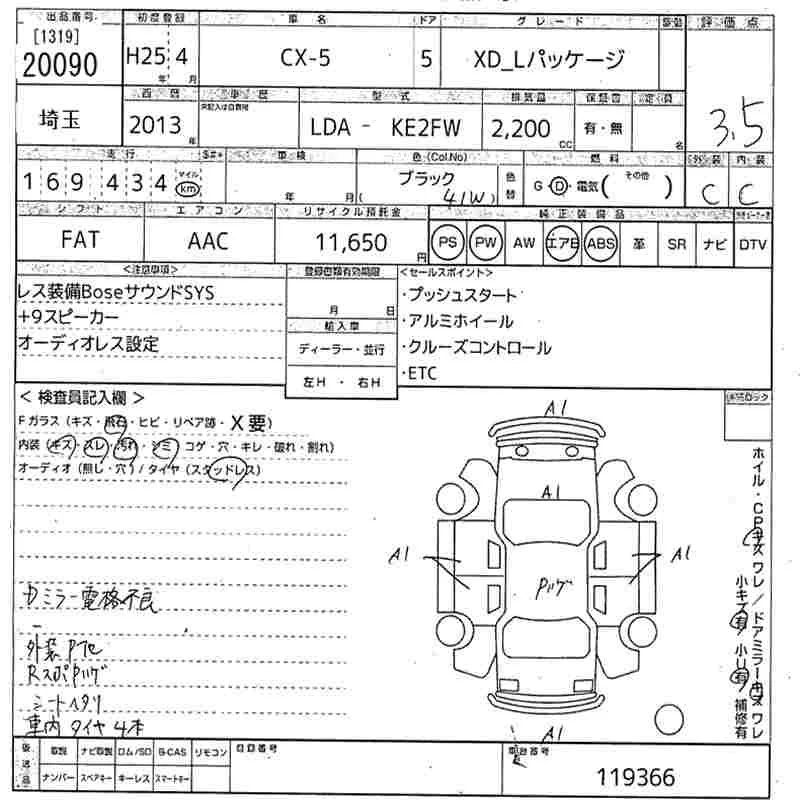 出品番号 初度登録 車名 ドア グレード 評価点
[1319]
20090 H25 4 年 月 CX-5 5 XD_Lパッケージ 3.5
埼玉 西暦 車歴 型式 排気量 保証書 定員
2013 年 LDA - KE2FW 2,200 CC 有・無 名
走行 車検 色(Col.No) 燃料 外装 内装
169434 マイル km 年 月 ブラック ( 41W ) 色替 G・D・電気( その他 ) C C
シフト エアコン リサイクル預託金 純正装備品
FAT AAC 11,650 円 PS PW AW エアB ABS 革 SR ナビ DTV
<注意事項> 登録書類有効期限 <セールスポイント>
レス装備BoseサウンドSYS
+9スピーカー
オーディオレス設定
月 日
輸入車
ディーラー・並行
左H ・ 右H
・プッシュスタート
・アルミホイール
・クルーズコントロール
・ETC
<検査員記入欄>
Fガラス(キズ・飛石・ヒビ・リペア跡・X要)
内装(キズ・スレ・汚れ・シミ・コゲ・穴・キレ・破れ・割れ)
オーディオ(無し・穴)/タイヤ(スタッドレス)
Dミラー電格不良
外装Pモ
RスポPハゲ
シートヘタリ
車内タイヤ4本
A1
A1
A1 A1
Pハゲ
A1
ホイル・CPキズワレ/ドアミラーキズワレ
小キズ有 小U有 補修有
後送品 取説 ナビ取説 ロム/SD B-CAS リモコン 登録番号 車台番号
ナンバー スペアキー キーレス スマートキー 119366